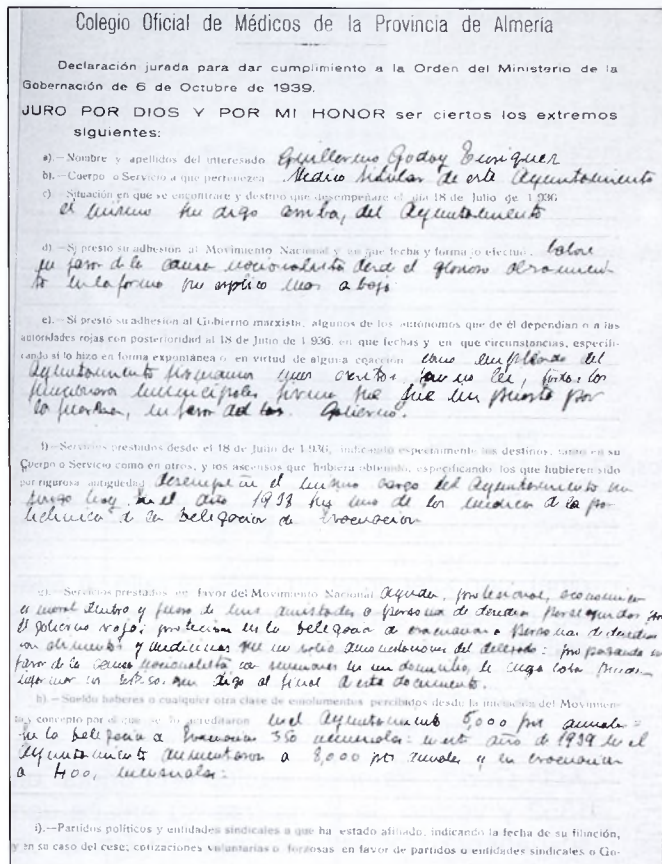 Colegio Oficial de Médicos de la Provincia de Almería
Declaración jurada para dar cumplimiento a la Orden del Ministerio de la
Gobernación de 6 de Octubre de 1939.
JURO POR DIOS Y POR MI HONOR ser ciertos los extremos
siguientes:
a).—Nombre y apellidos del interesado Guillermo Godoy Enriquez
b).—Cuerpo o Servicio a que pertenezca Medico titular de este Ayuntamiento
c) Situación en que se encontrare y destino que desempeñare el día 18 de Julio de 1.936
el mismo que digo arriba, del Ayuntamiento
d) —Si prestó su adhesión al Movimiento Nacional y en que fecha y forma lo efectuó. Labore
en favor de la causa nacionalista desde el glorioso alzamien-
to en la forma que explico mas abajo
e).—Si prestó su adhesión al Gobierno marxista, algunos de los autónomos que de él dependían o a las
autoridades rojas con posterioridad al 18 de Julio de 1.936, en que fechas y en que circunstancias, especifi-
cando si lo hizo en forma expontánea o en virtud de alguna coacción como empleado del
Ayuntamiento firmamos unos escritos que no lei, todos los
funcionarios municipales firma que fue impuesta por
la fuerza, en favor del Gobierno.
f)—Servicios prestados desde el 18 de Julio de 1.936, indicando especialmente los destinos, tanto en su
Cuerpo o Servicio como en otros, y los ascensos que hubiera obtenido, especificando los que hubieren sido
por rigurosa antigüedad desempeñe el mismo cargo del Ayuntamiento que
tengo hoy. en el año 1938 fui uno de los medicos de la po-
liclinica de la Delegacion de Evacuacion
g).—Servicios prestados en favor del Movimiento Nacional ayuda, profesional, economica
o moral dentro y fuera de mis amistades a personas de derechas perseguidas por
el gobierno rojo; proteccion en la Delegacion de evacuacion a personas de derechas
con alimentos y medicinas del delegado: propaganda en
favor de la causa nacionalista con reuniones en mi domicilio, de cuya labor pueden
informar que digo al final de este documento.
h).—Sueldo haberes o cualquier otra clase de emolumentos percibidos desde la iniciación del Movimien-
to y concepto por el que se le acreditaron en el Ayuntamiento 5,000 pts anuales =
en la Delegacion de Evacuacion 350 mensuales: en este año de 1939 en el
Ayuntamiento aumentaron a 8,000 pts anuales y en evacuacion
a 400, mensuales:
i).—Partidos políticos y entidades sindicales a que ha estado afiliado, indicando la fecha de su filiación,
y en su caso del cese; cotizaciones voluntarias o forzosas en favor de partidos o entidades sindicales o Go-